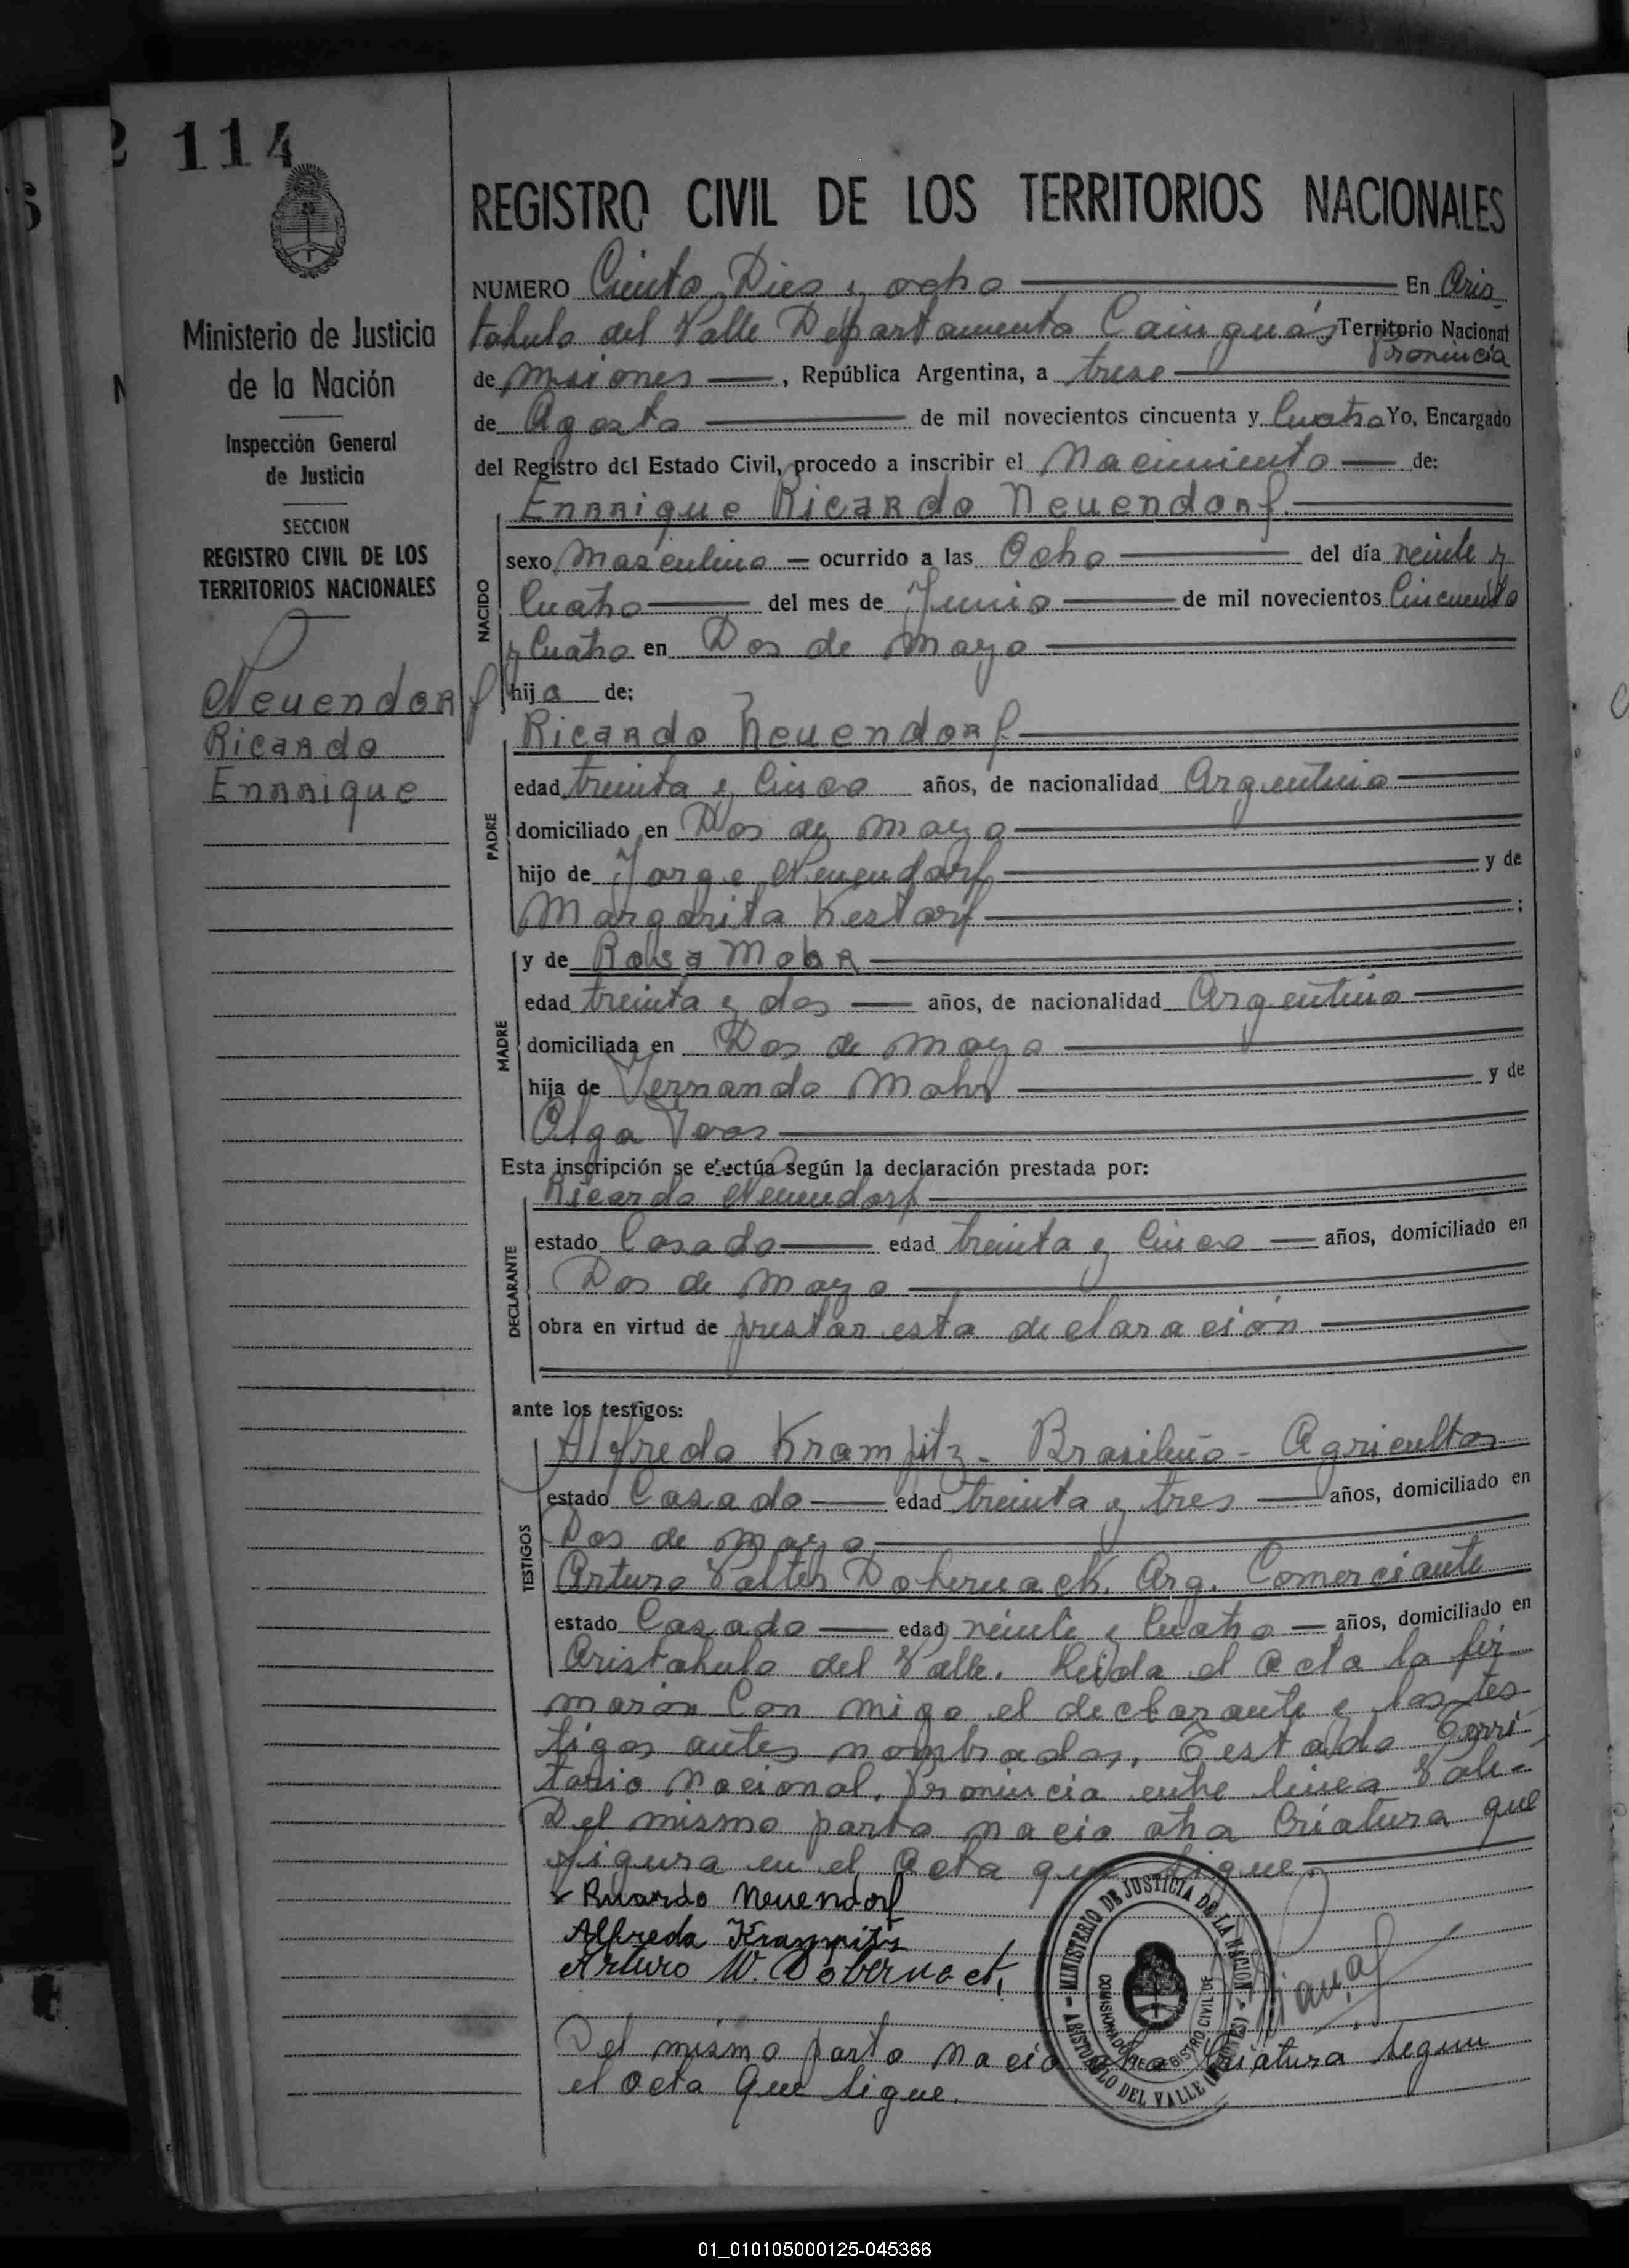 114
REGISTRO CIVIL DE LOS TERRITORIOS NACIONALES
Ministerio de Justicia
de la Nación
Inspección General
de Justicia
SECCION
REGISTRO CIVIL DE LOS
TERRITORIOS NACIONALES
Neuendorf
Ricardo
Enrrique
NUMERO Ciento Dies y ocho En Aris-
tobulo del Valle Departamento Cainguás Territorio Nacional
Provincia
de Misiones, República Argentina, a trese
de Agosto de mil novecientos cincuenta y Cuatro Yo, Encargado
del Registro del Estado Civil, procedo a inscribir el Nacimiento de:
NACIDO
Enrrique Ricardo Neuendorf.
sexo Masculino ocurrido a las Ocho del día veinte y
Cuatro del mes de Junio de mil novecientos Cincuenta
y Cuatro en Dos de Mayo
hijo de:
PADRE
Ricardo Neuendorf
edad treinta y Cinco años, de nacionalidad Argentino
domiciliado en Dos de Mayo
hijo de Jorge Neuendorf y de
Margarita Kestorf ;
MADRE
y de Rosa Mohr
edad treinta y dos años, de nacionalidad Argentino
domiciliada en Dos de Mayo
hija de Fernando Mohr y de
Olga Voos
Esta inscripción se efectúa según la declaración prestada por:
DECLARANTE
Ricardo Neuendorf
estado Casado edad treinta y Cinco años, domiciliado en
Dos de Mayo
obra en virtud de prestar esta declaración
ante los testigos:
TESTIGOS
Alfredo Krampitz - Brasileño - Agricultor
estado Casado edad treinta y tres años, domiciliado en
Dos de Mayo
Arturo Valter Dobernack. Arg. Comerciante
estado Casado edad veinte y Cuatro años, domiciliado en
Aristobulo del Valle. Leida el Acta la fir-
maron Con migo el declarante y los tes-
tigos antes nombrados. Testado Terri-
torio Nacional. Provincia entre linea Vale-
Del mismo parto nacio otra Criatura que
figura en el Acta que sigue.
Ricardo Neuendorf
Alfredo Krampitz
Arturo W. Dobernack
MINISTERIO DE JUSTICIA DE LA NACION
COMISIONADO DE REGISTRO CIVIL DE
ARISTOBULO DEL VALLE (MISIONES)
Del mismo parto nacio otra Criatura segun
el Acta Que sigue.
01_010105000125-045366